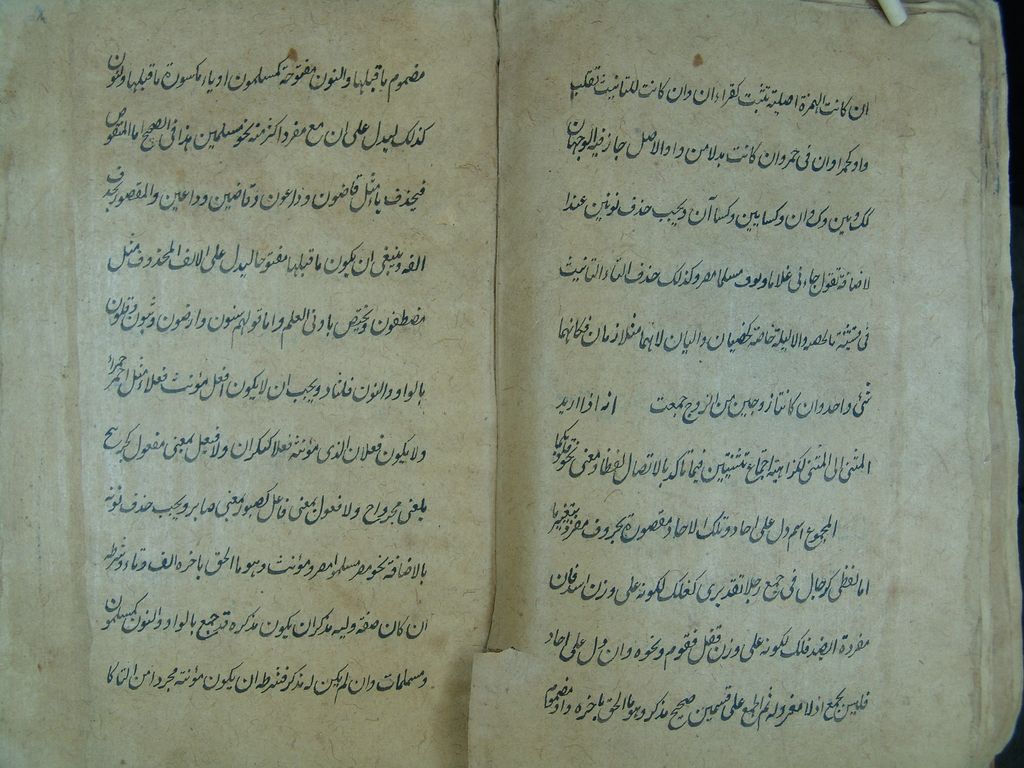 ان كانت الهمزة اصلية تثبت كقراءان وان كانت للتانيث تقلب
واو كحمراوان فى حمر وان كانت بدلا من واو الاصل جاز فيه الوجهان
وكساوين وكساآن ويجب حذف نونين عند
لاضافة تقول جاءنى غلاما ومسلما مصر وكذلك حذف التاء التانيث
فى تثنية الخصية والالية خاصة كخصيان واليان لانهما متلازمان فكانهما
شئ واحد وان كانتا زوجين من الزوج جمعت انه اذا اريد
المثنى الى المثنى لكراهية اجتماع تثنيتين فيما تاكد بالاتصال لفظا ومعنى نحو قلوبكما
المجموع اسم دل على احاد وتلك الاحاد مقصودة بحروف مفرده بتغيير ما
اما لفظى كرجال فى جمع رجل تقديرى كفلك لكونه على وزن اسد فان
مفرده ايضا فلك لكونه على وزن قفل فقوم ونحوه وان دل على احاد
فليس بجمع اذ لا مفرد له ثم الجمع على قسمين صحيح مذكر وهو ما الحق باخره واو مضموم
مضموم ما قبلها والنون مفتوحة كمسلمون او ياء مكسورة ما قبلها ونون
كذلك ليدل على ان مع مفرد اكثر منه نحو مسلمين هذا فى الصحيح اما المنقوص
فيحذف ياءه مثل قاضون وداعون وقاضين وداعين والمقصور يحذف
الفه وينبغى ان يكون ما قبلها مفتوحا ليدل على الالف المحذوف مثل
مصطفون ويختص باولى العلم واما قولهم سنون وارضون وثبون وقلون
بالواو والنون فشاذ ويجب ان لا يكون افعل مؤنثه فعلاء مثل احمر حمراء
ولا يكون فعلان الذى مؤنثه فعلى كسكران ولا فعيل بمعنى مفعول كجريح
بمعنى مجروح ولا فعول بمعنى فاعل كصبور بمعنى صابر ويجب حذف نونه
بالاضافة نحو مسلمو مصر ومؤنث وهو ما الحق باخره الف وتاء وشرطه
ان كان صفة وله مذكر ان يكون مذكره قد جمع بالواو والنون كمسلمون
ومسلمات وان لم يكن له مذكر فشرطه ان يكون مؤنثه مجردا من التا كا